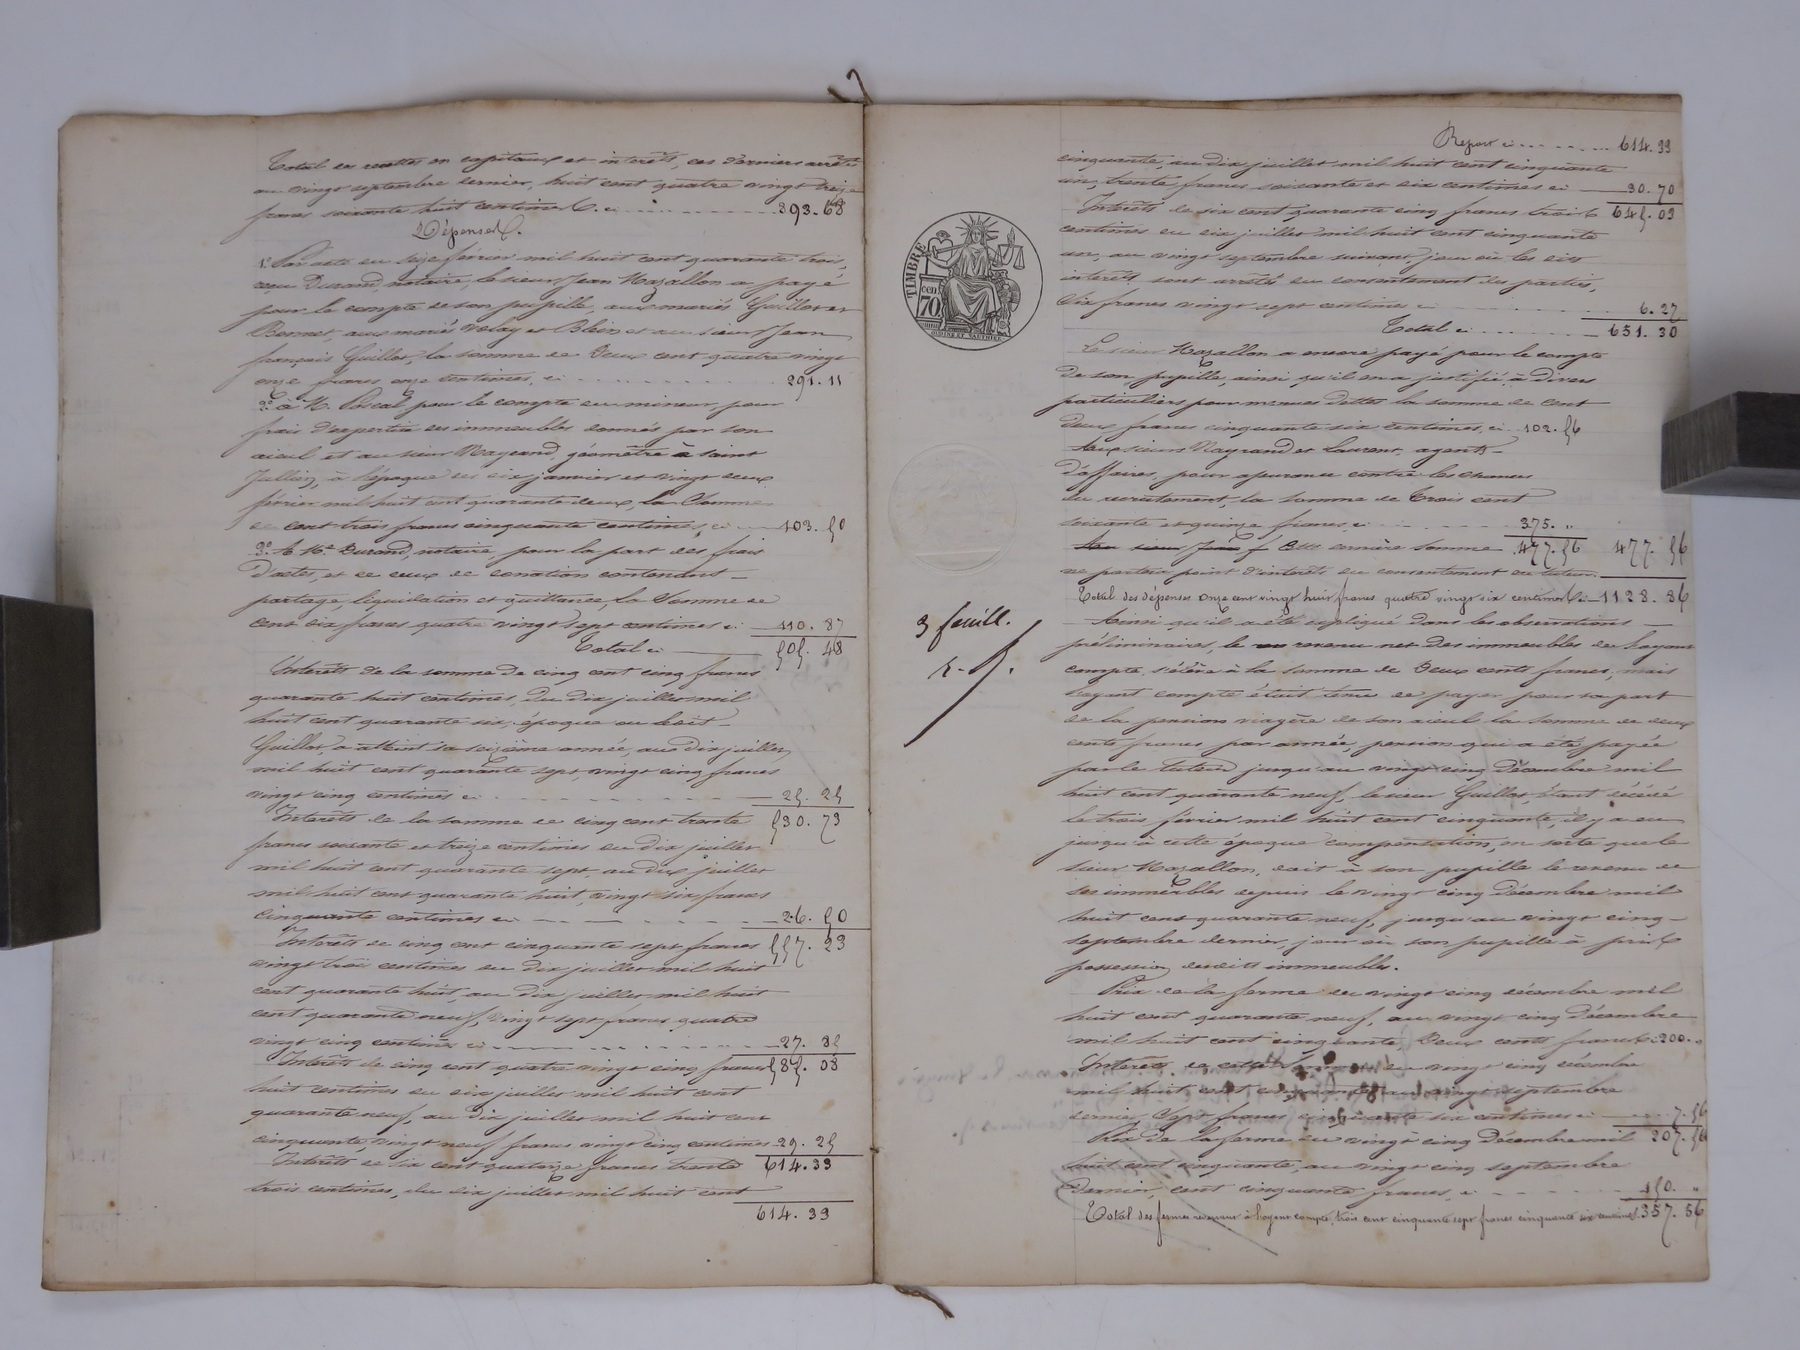 Total en recettes en capitaux et intérêts, ces derniers arrêtés
au vingt septembre dernier, huit cent quatre vingt treize
francs soixante huit centimes C. ci 893.68
Dépenses.
1° Par acte du seize février mil huit cent quarante trois,
reçu Durand, notaire, le sieur Jean Mazallon a payé
pour le compte de son pupille, aux mariés Guillot et
Bonnet, aux mariés Velay et Blein et au sieur Jean
françois Guillot, la somme de Deux cent quatre vingt
onze francs onze centimes, ci 291.11
2° à M. Pascal pour le compte du mineur, pour
frais d'expertise des immeubles donnés par son
aieul et au sieur Mageand, géomètre à saint
Jullien, à l'époque des six janvier et vingt deux
février mil huit cent quarante deux, la Somme
de cent trois francs cinquante centimes, ci 103.50
3° à Me Durand, notaire, pour la part des frais
d'actes, et de ceux de donation contenant
partage, liquidation et quittance, la Somme de
cent dix francs quatre vingt sept centimes ci 110.87
Total ci 505.48
Intérêts de la somme de cinq cent cinq francs
quarante huit centimes, du dix juillet mil
huit cent quarante six, époque où ledit
Guillot, a atteint sa seizième année, au dix juillet
mil huit cent quarante sept, vingt cinq francs
vingt cinq centimes ci 25.25
Intérêts de la somme de cinq cent trente 530.73
francs soixante et treize centimes du dix juillet
mil huit cent quarante sept, au dix juillet
mil huit cent quarante huit, vingt six francs
cinquante centimes ci 26.50
Intérêts de cinq cent cinquante sept francs 557.23
vingt trois centimes du dix juillet mil huit
cent quarante huit, au dix juillet mil huit
cent quarante neuf, vingt sept francs quatre
vingt cinq centimes ci 27.85
Intérêts de cinq cent quatre vingt cinq francs 585.08
huit centimes du dix juillet mil huit cent
quarante neuf, au dix juillet mil huit cent
cinquante, vingt neuf francs vingt cinq centimes 29.25
Intérêts de six cent quatorze francs trente 614.33
trois centimes, du dix juillet mil huit cent
614.33
Report ci 614.33
cinquante, au dix juillet mil huit cent cinquante
un, trente francs soixante et dix centimes ci 30.70
Intérêts de six cent quarante cinq francs trois 645.03
centimes du dix juillet mil huit cent cinquante
un, au vingt septembre suivant, jour où les dits
intérêts sont arrêtés du consentement des parties,
six francs vingt sept centimes ci 6.27
Total ci 651.30
Le sieur Mazallon a encore payé pour le compte
de son pupille, ainsi qu'il m'a justifié, à divers
particuliers pour menues dettes la somme de cent
deux francs cinquante six centimes, ci 102.56
Aux sieurs Magrand et Laurent, agents
d'affaires, pour assurance contre les chances
du recrutement, la somme de Trois cent
soixante et quinze francs, ci 375. "
Cette dernière somme 477.56 477.56
ne portera point d'intérêts du consentement du tuteur.
Total des dépenses Onze cent vingt huit francs quatre vingt six centimes ci 1128.86
TIMBRE
70 cen
3 feuill.
Ainsi qu'il a été expliqué dans les observations
préliminaires, le revenu net des immeubles de l'oyant
compte, s'élève à la somme de Deux cents francs, mais
l'oyant compte était tenu de payer, pour sa part
de la pension viagère de son aieul la somme de deux
cents francs par année, pension qui a été payée
par le tuteur jusqu'au vingt cinq Décembre mil
huit cent quarante neuf, le sieur Guillot, étant décédé
le trois février mil huit cent cinquante, il y a eu
jusqu'à cette époque compensation, en sorte que le
sieur Mazallon, doit à son pupille le revenu de
ses immeubles depuis le vingt cinq Décembre mil
huit cent quarante neuf, jusqu'au vingt cinq
septembre dernier, jour où son pupille à pris
possession desdits immeubles.
Prix de la ferme du vingt cinq décembre mil
huit cent quarante neuf, au vingt cinq Décembre
mil huit cent cinquante, Deux cents francs ci 200. "
Intérêts de cette somme du vingt cinq décembre
mil huit cent cinquante au vingt septembre
dernier, Sept francs cinquante six centimes ci 7.56
Prix de la ferme du vingt cinq Décembre mil 207.56
huit cent cinquante, au vingt cinq septembre
Dernier, cent cinquante francs, ci 150. "
Total des fermes revenant à l'oyant compte, trois cent cinquante sept francs cinquante six centimes 357.56